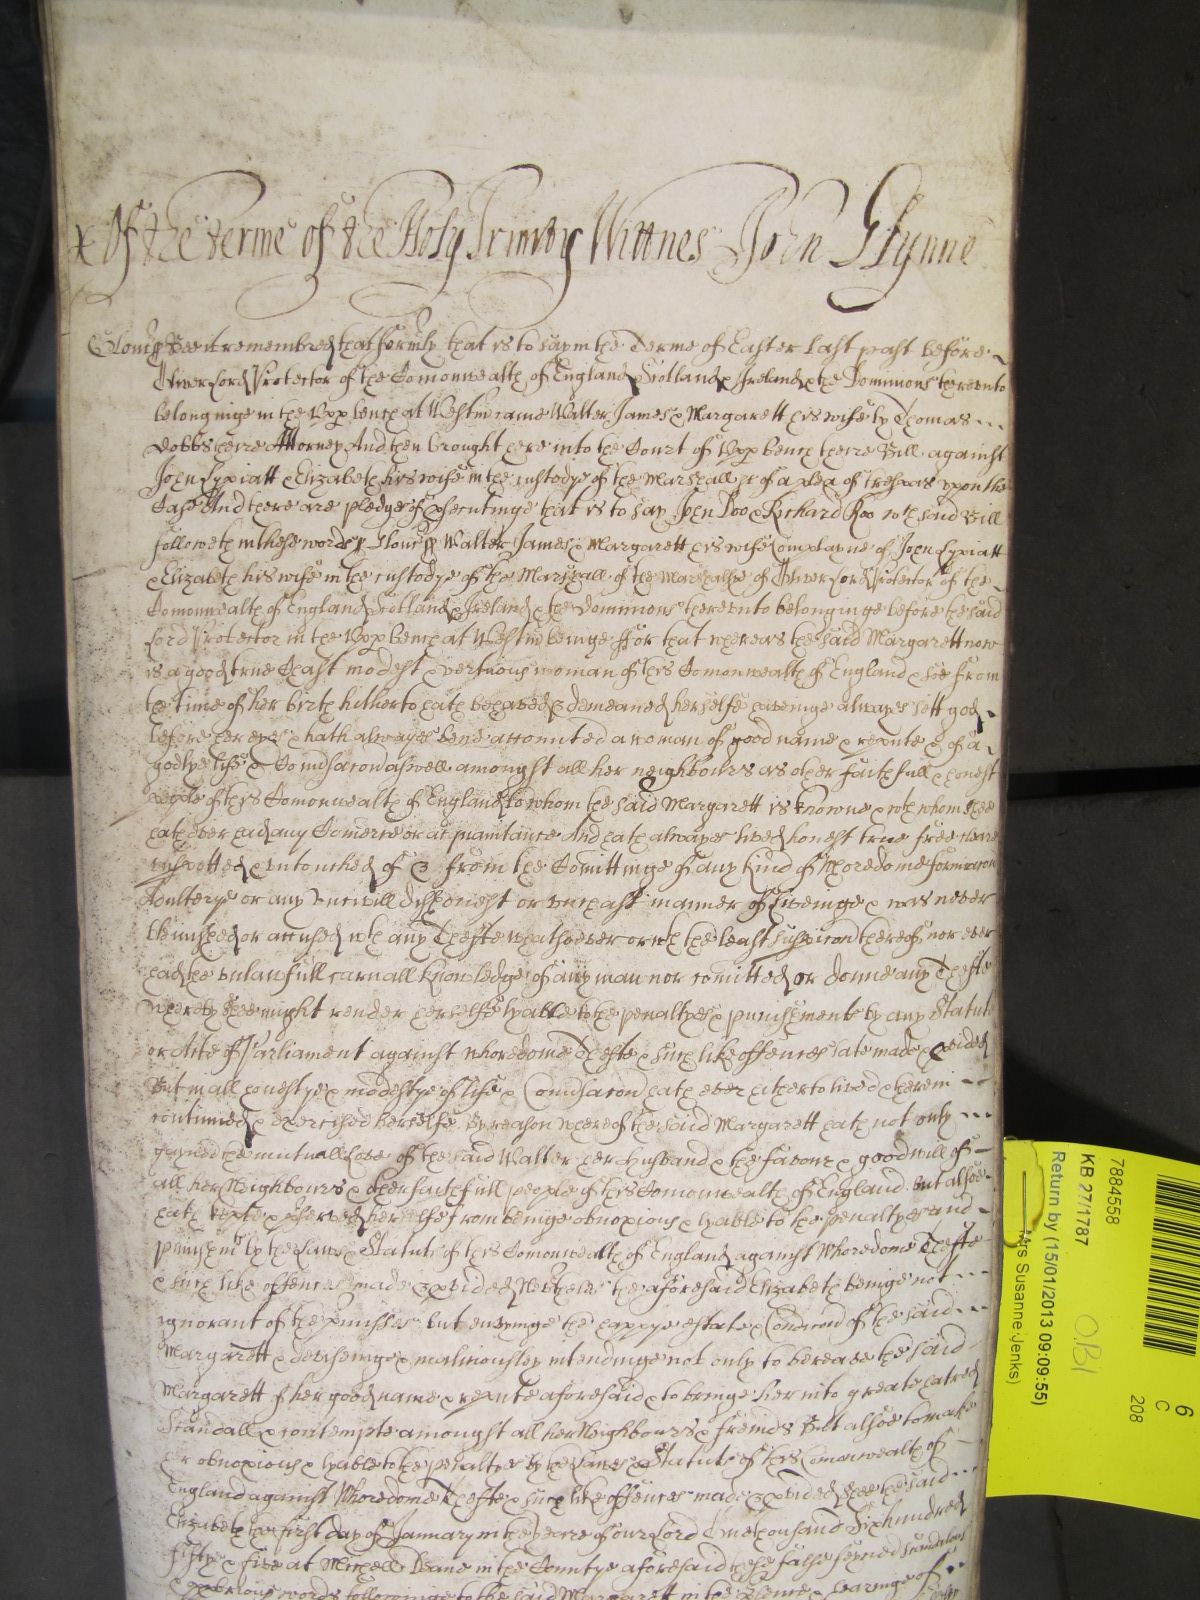 Of the terme of the Holy Trinity Wittnes John Glynne
Glouc ss Bee it remembred that formly that is to say in the Terme of Easter last past before
Oliver Lord Protector of the Comonwealth of England Scotland & Ireland & the Dominions thereunto
belonginge in the Upp bench at Westm came Walter James & Margarett his wife by Thomas
Dobbs theire Attorney And then brought here into the Court of Upp bench theire Bill against
John Lypiatt & Elizabeth his wife in the custodye of the Marshall &c of a plea of trespas upon the
Case And there are pledges of psecutinge that is to say John Doo & Richard Roo wch said Bill
followeth in these words ss Glouc ss Walter James & Margarett his wife complayne of John Lypiatt
& Elizabeth his wife in the custodye of the Marshall of the Marshalsye of Oliver Lord Protector of the
Comonwealth of England Scotland & Ireland & the Dominions thereunto belonginge before the said
Lord Protector in the Upp bench at Westm beinge ffor that whereas the said Margarett now
is a good true Chast modest & vertuous woman of this Comonwealth of England & soe from
the time of her birth hitherto hath behaved & demeaned herselfe haveinge always sett god
before her eyes & hath alwayes bene accounted a woman of good name & repute & of a
godlye life & Convsacon aswell amongst all her neighbours as other faithfull & honest
people of this Comonwealth of England to whom the said Margarett is knowne & wth whom shee
hath ever had any Comerce or acquaintance And hath alwayes lived honest true free cleare
unspotted & untouched of & from the Comittinge of any kind of Whoredome fornicacon
Adulterye or any uncivill dishonest or unchast manner of liveinge & was never
blemished or accused wth any Thefte whatsoever or wth the least suspicon thereof nor ever
had the unlawfull carnall knowledge of any man nor comitted or donne any Thefte
whereby shee might render herselfe lyable to the penaltyes & punishments by any Statute
or Acte of Parliament against whoredome Thefte & such like offences late made & pvided
But in all honestye & modestye of life & Convsacon hath ever hitherto lived & therein
continued & exercised herselfe By reason whereof the said Margarett hath not only
gayned the mutuall Love of the said Walter her Husband & the favour & good will of
all her Neighbours & other faithfull people of this Comonwealth of England But alsoe
hath kepte & pserved herselfe from beinge obnoxious & lyable to the penaltyes and
punishmts by the Laws & Statuts of this Comonwealth of England against Whoredome Thefte
& such like offences made & pvided Nevtheles the aforesaid Elizabeth beinge not
ignorant of the pmisses but envyinge the happye estate & Condicon of the said
Margarett & devisinge & maliciously intendinge not only to bereave the said
Margarett of her good name & repute aforesaid & to bringe her into greate hatred
Scandall & contempte amongst all her Neighbours & freinds But alsoe to make
her obnoxious & lyable to the penaltyes by the Laws & Statuts of this Comonwealth of
England against Whoredome Thefte & such like offences made & pvided shee the said
Elizabeth the first day of January in the yeare of our Lord One thousand Six hundred
fifty & five at Michell Deane in the Countye aforesaid these false feyned scandalous
& opprobrious words followinge to the said Margarett in the psence & hearinge of
6
C
208
7884558
KB 27/1787
OBI
Return by (15/01/2013 09:09:55)
Mrs Susanne Jenks)